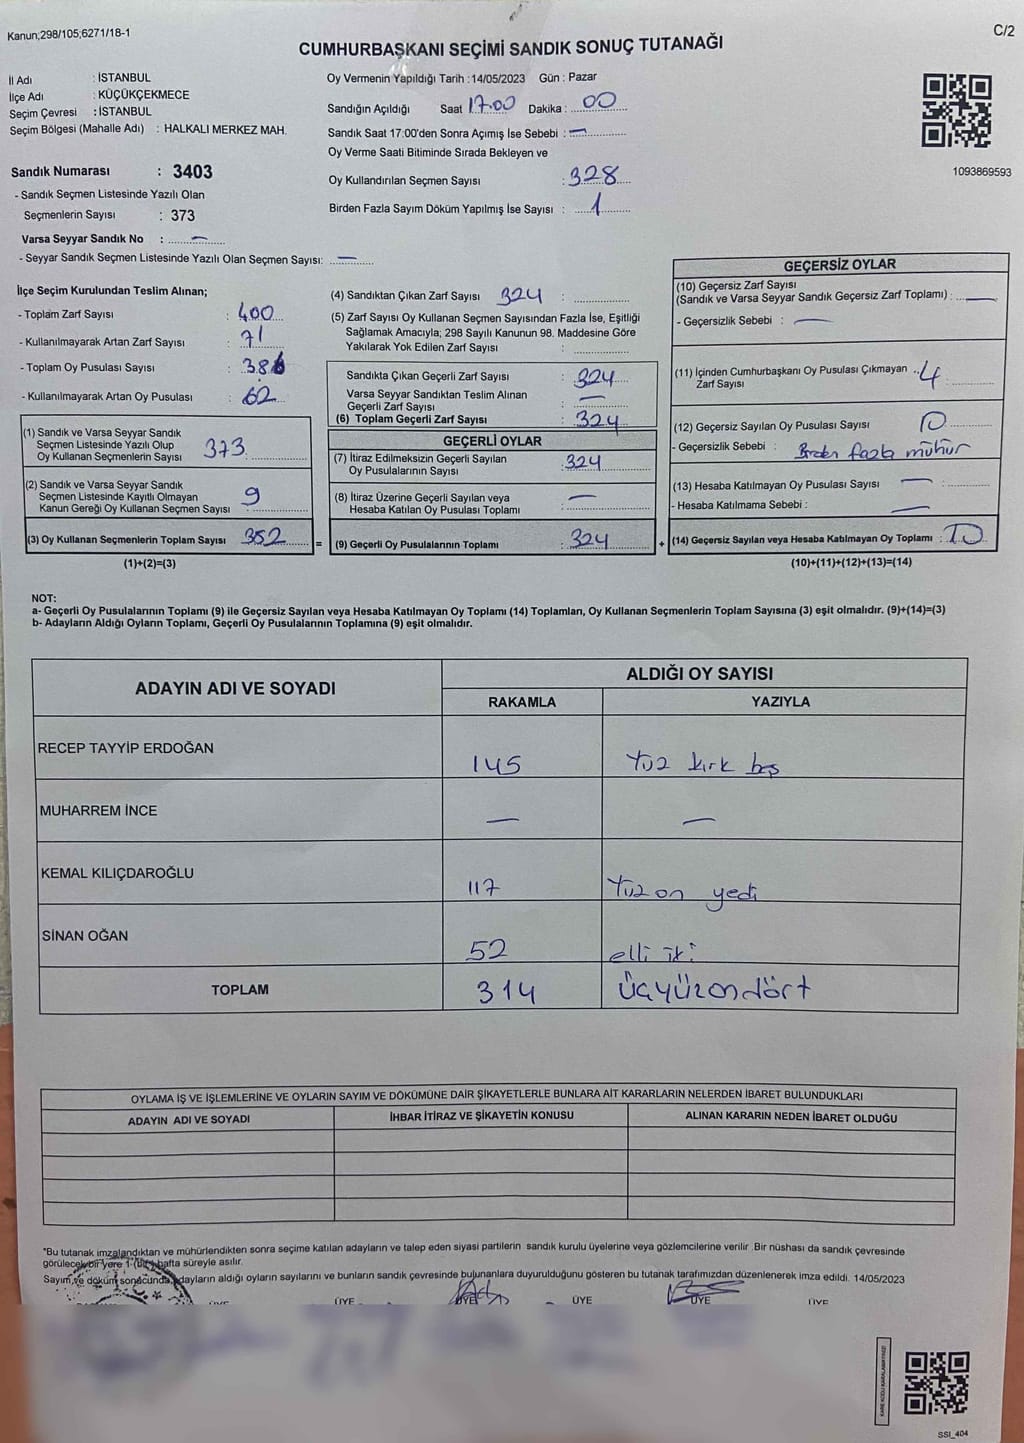 Kanun;298/105;6271/18-1
C/2
CUMHURBAŞKANI SEÇİMİ SANDIK SONUÇ TUTANAĞI
İl Adı : İSTANBUL
İlçe Adı : KÜÇÜKÇEKMECE
Seçim Çevresi : İSTANBUL
Seçim Bölgesi (Mahalle Adı) : HALKALI MERKEZ MAH.
Sandık Numarası : 3403
- Sandık Seçmen Listesinde Yazılı Olan
Seçmenlerin Sayısı : 373
Varsa Seyyar Sandık No : —
- Seyyar Sandık Seçmen Listesinde Yazılı Olan Seçmen Sayısı: —
Oy Vermenin Yapıldığı Tarih :14/05/2023 Gün : Pazar
Sandığın Açıldığı Saat 17.00 Dakika : 00
Sandık Saat 17:00'den Sonra Açımış İse Sebebi : —
Oy Verme Saati Bitiminde Sırada Bekleyen ve
Oy Kullandırılan Seçmen Sayısı : 328
Birden Fazla Sayım Döküm Yapılmış İse Sayısı : 1
1093869593
İlçe Seçim Kurulundan Teslim Alınan;
- Toplam Zarf Sayısı : 400
- Kullanılmayarak Artan Zarf Sayısı : 71
- Toplam Oy Pusulası Sayısı : 386
- Kullanılmayarak Artan Oy Pusulası : 62
(1) Sandık ve Varsa Seyyar Sandık
Seçmen Listesinde Yazılı Olup
Oy Kullanan Seçmenlerin Sayısı 373
(2) Sandık ve Varsa Seyyar Sandık
Seçmen Listesinde Kayıtlı Olmayan
Kanun Gereği Oy Kullanan Seçmen Sayısı : 9
(3) Oy Kullanan Seçmenlerin Toplam Sayısı 352
(1)+(2)=(3)
(4) Sandıktan Çıkan Zarf Sayısı 324 :
(5) Zarf Sayısı Oy Kullanan Seçmen Sayısından Fazla İse, Eşitliği
Sağlamak Amacıyla; 298 Sayılı Kanunun 98. Maddesine Göre
Yakılarak Yok Edilen Zarf Sayısı :
Sandıkta Çıkan Geçerli Zarf Sayısı : 324
Varsa Seyyar Sandıktan Teslim Alınan
Geçerli Zarf Sayısı : —
(6) Toplam Geçerli Zarf Sayısı : 324
GEÇERLİ OYLAR
(7) İtiraz Edilmeksizin Geçerli Sayılan
Oy Pusulalarının Sayısı : 324
(8) İtiraz Üzerine Geçerli Sayılan veya
Hesaba Katılan Oy Pusulası Toplamı : —
= (9) Geçerli Oy Pusulalarının Toplamı : 324
GEÇERSİZ OYLAR
(10) Geçersiz Zarf Sayısı
(Sandık ve Varsa Seyyar Sandık Geçersiz Zarf Toplamı) : —
- Geçersizlik Sebebi : —
(11) İçinden Cumhurbaşkanı Oy Pusulası Çıkmayan 4
Zarf Sayısı
(12) Geçersiz Sayılan Oy Pusulası Sayısı 10
- Geçersizlik Sebebi : Birden fazla mühür
(13) Hesaba Katılmayan Oy Pusulası Sayısı — :
- Hesaba Katılmama Sebebi : —
+ (14) Geçersiz Sayılan veya Hesaba Katılmayan Oy Toplamı : 10
(10)+(11)+(12)+(13)=(14)
NOT:
a- Geçerli Oy Pusulalarının Toplamı (9) ile Geçersiz Sayılan veya Hesaba Katılmayan Oy Toplamı (14) Toplamları, Oy Kullanan Seçmenlerin Toplam Sayısına (3) eşit olmalıdır. (9)+(14)=(3)
b- Adayların Aldığı Oyların Toplamı, Geçerli Oy Pusulalarının Toplamına (9) eşit olmalıdır.
ADAYIN ADI VE SOYADI
ALDIĞI OY SAYISI
RAKAMLA YAZIYLA
RECEP TAYYİP ERDOĞAN 145 Yüz kırk beş
MUHARREM İNCE — —
KEMAL KILIÇDAROĞLU 117 Yüz on yedi
SİNAN OĞAN 52 elli iki
TOPLAM 314 üçyüzondört
OYLAMA İŞ VE İŞLEMLERİNE VE OYLARIN SAYIM VE DÖKÜMÜNE DAİR ŞİKAYETLERLE BUNLARA AİT KARARLARIN NELERDEN İBARET BULUNDUKLARI
ADAYIN ADI VE SOYADI İHBAR İTİRAZ VE ŞİKAYETİN KONUSU ALINAN KARARIN NEDEN İBARET OLDUĞU
*Bu tutanak imzalandıktan ve mühürlendikten sonra seçime katılan adayların ve talep eden siyasi partilerin sandık kurulu üyelerine veya gözlemcilerine verilir. Bir nüshası da sandık çevresinde
görülecek bir yere 1 (bir) hafta süreyle asılır.
Sayım ve döküm sonucunda, adayların aldığı oyların sayılarını ve bunların sandık çevresinde bulunanlara duyurulduğunu gösteren bu tutanak tarafımızdan düzenlenerek imza edildi. 14/05/2023
ÜYE ÜYE ÜYE ÜYE ÜYE ÜYE
SSI_404